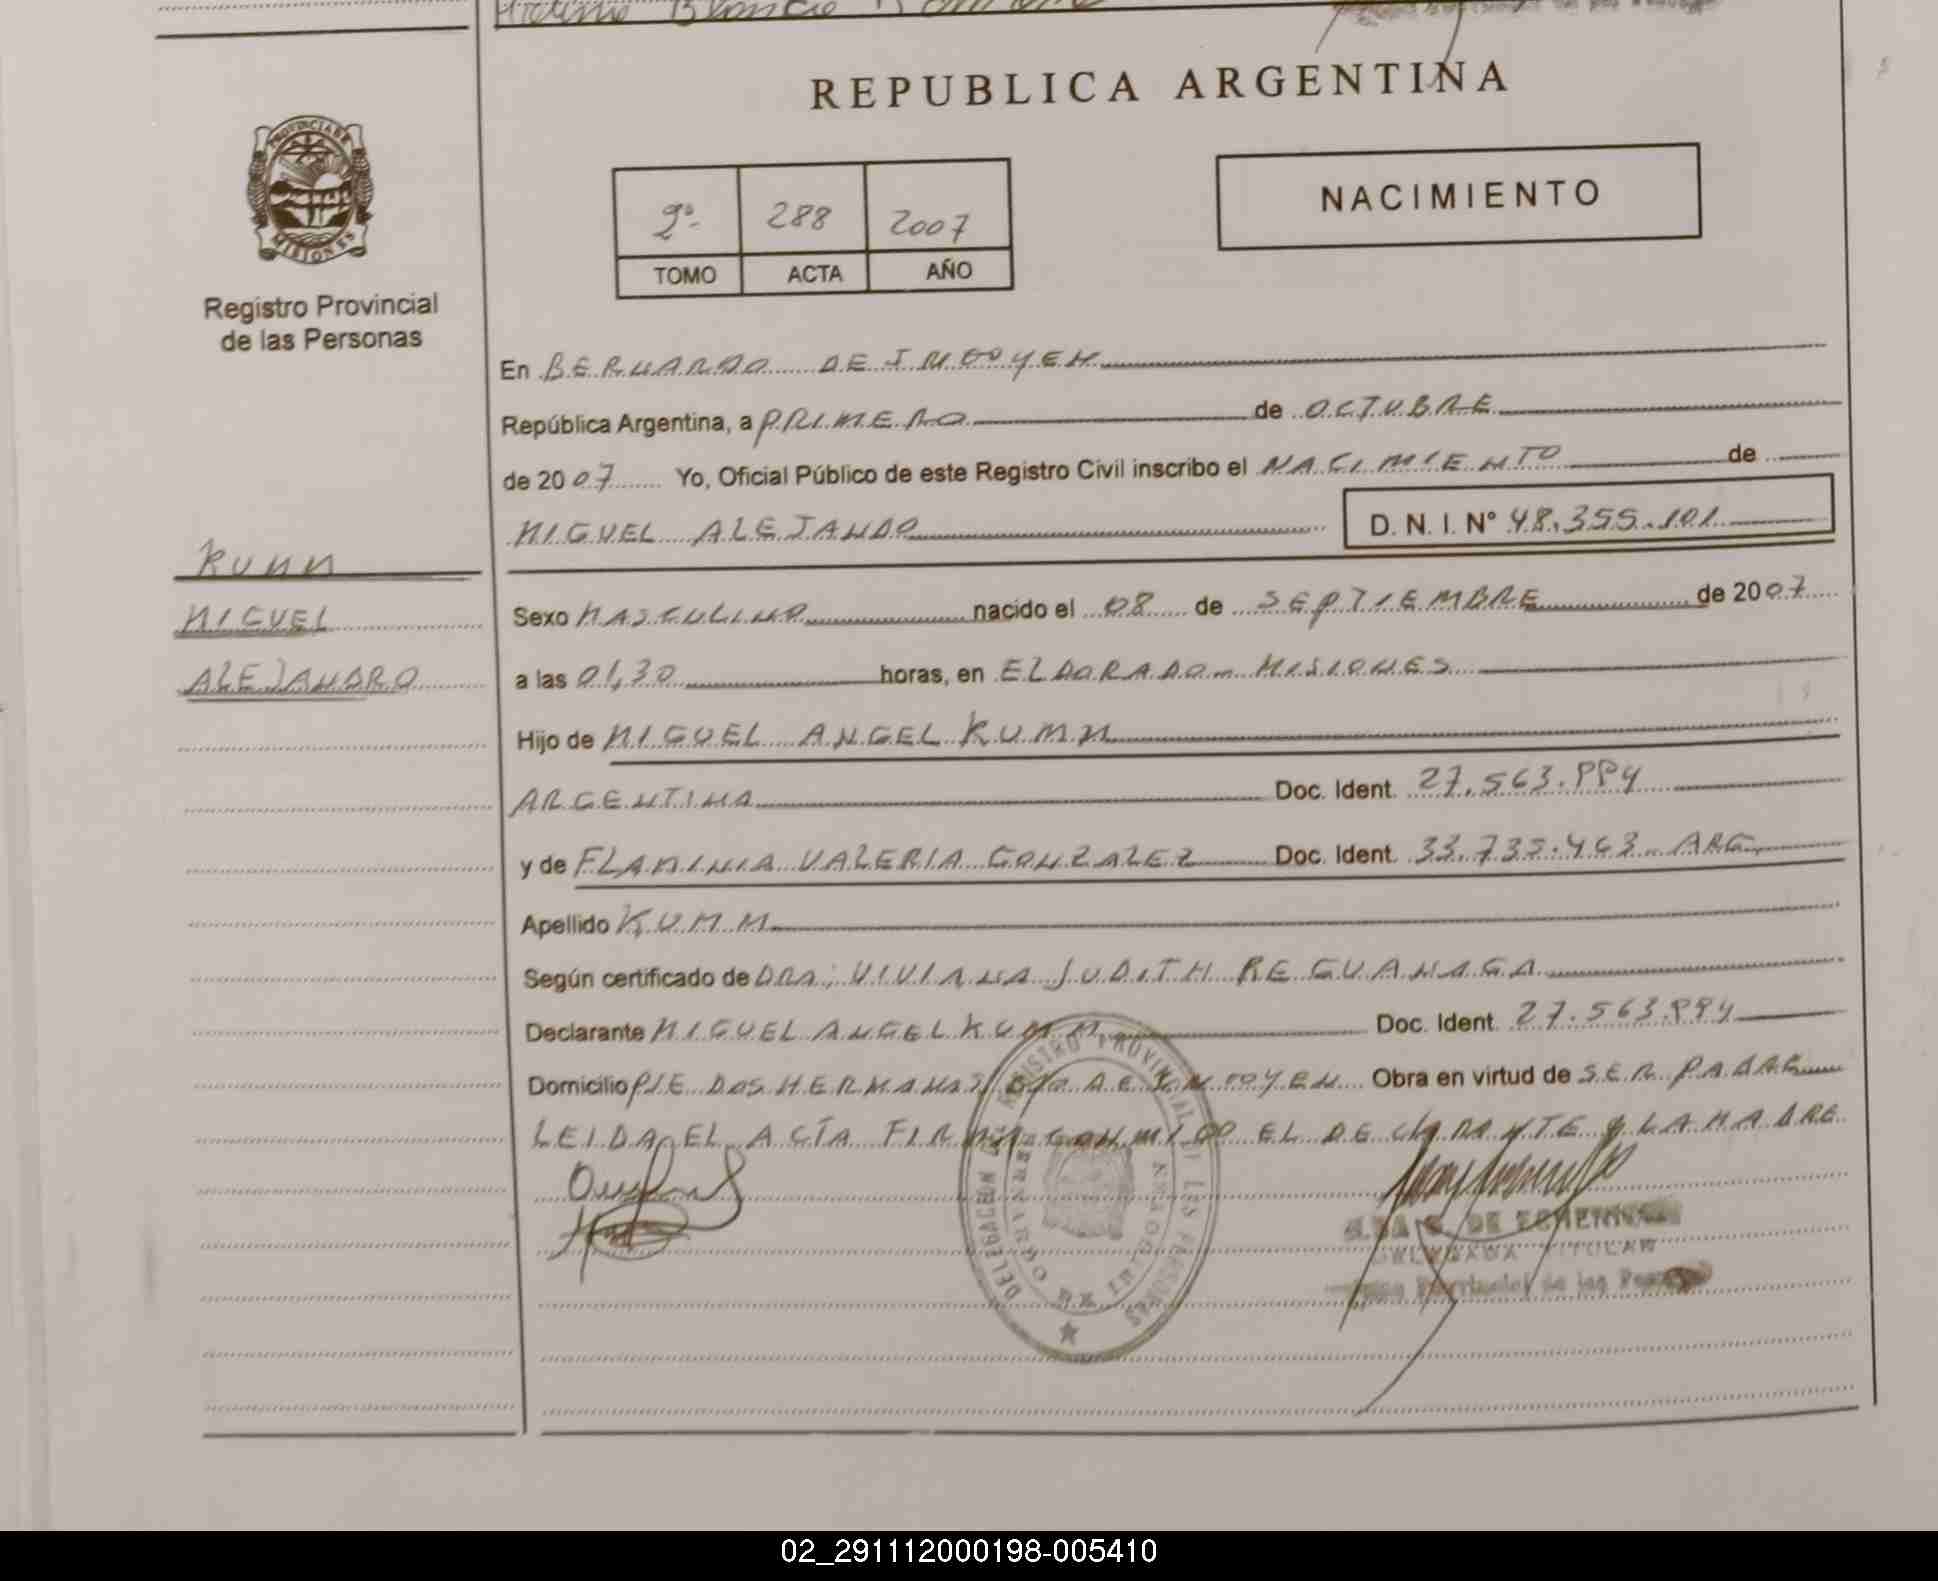 REPUBLICA ARGENTINA
PROVINCIA DE
MISIONES
Registro Provincial
de las Personas
2º- 288 2007
TOMO ACTA AÑO
NACIMIENTO
En BERNARDO DE IRIGOYEN
República Argentina, a PRIMERO de OCTUBRE
de 2007 Yo, Oficial Público de este Registro Civil inscribo el NACIMIENTO de
MIGUEL ALEJANDO D. N. I. N° 48.355.101
KUMM
MIGUEL
ALEJANDRO
Sexo MASCULINO nacido el 08 de SEPTIEMBRE de 2007
a las 01,30 horas, en ELDORADO - MISIONES
Hijo de MIGUEL ANGEL KUMM
ARGENTINA Doc. Ident. 27.563.994
y de FLAMINIA VALERIA GONZALEZ Doc. Ident. 33.735.463 ARG
Apellido KUMM
Según certificado de DRA; VIVIANA JUDITH REGUANAGA
Declarante MIGUEL ANGEL KUMM Doc. Ident. 27.563.994
Domicilio PJE DOS HERMANAS DE IRIGOYEN Obra en virtud de SER PADRE
LEIDA EL ACTA FIRMAN CONMIGO EL DECLARANTE Y LA MADRE
DELEGACION REGISTRO PROVINCIAL DE LAS PERSONAS
BERNARDO DE IRIGOYEN
02_291112000198-005410